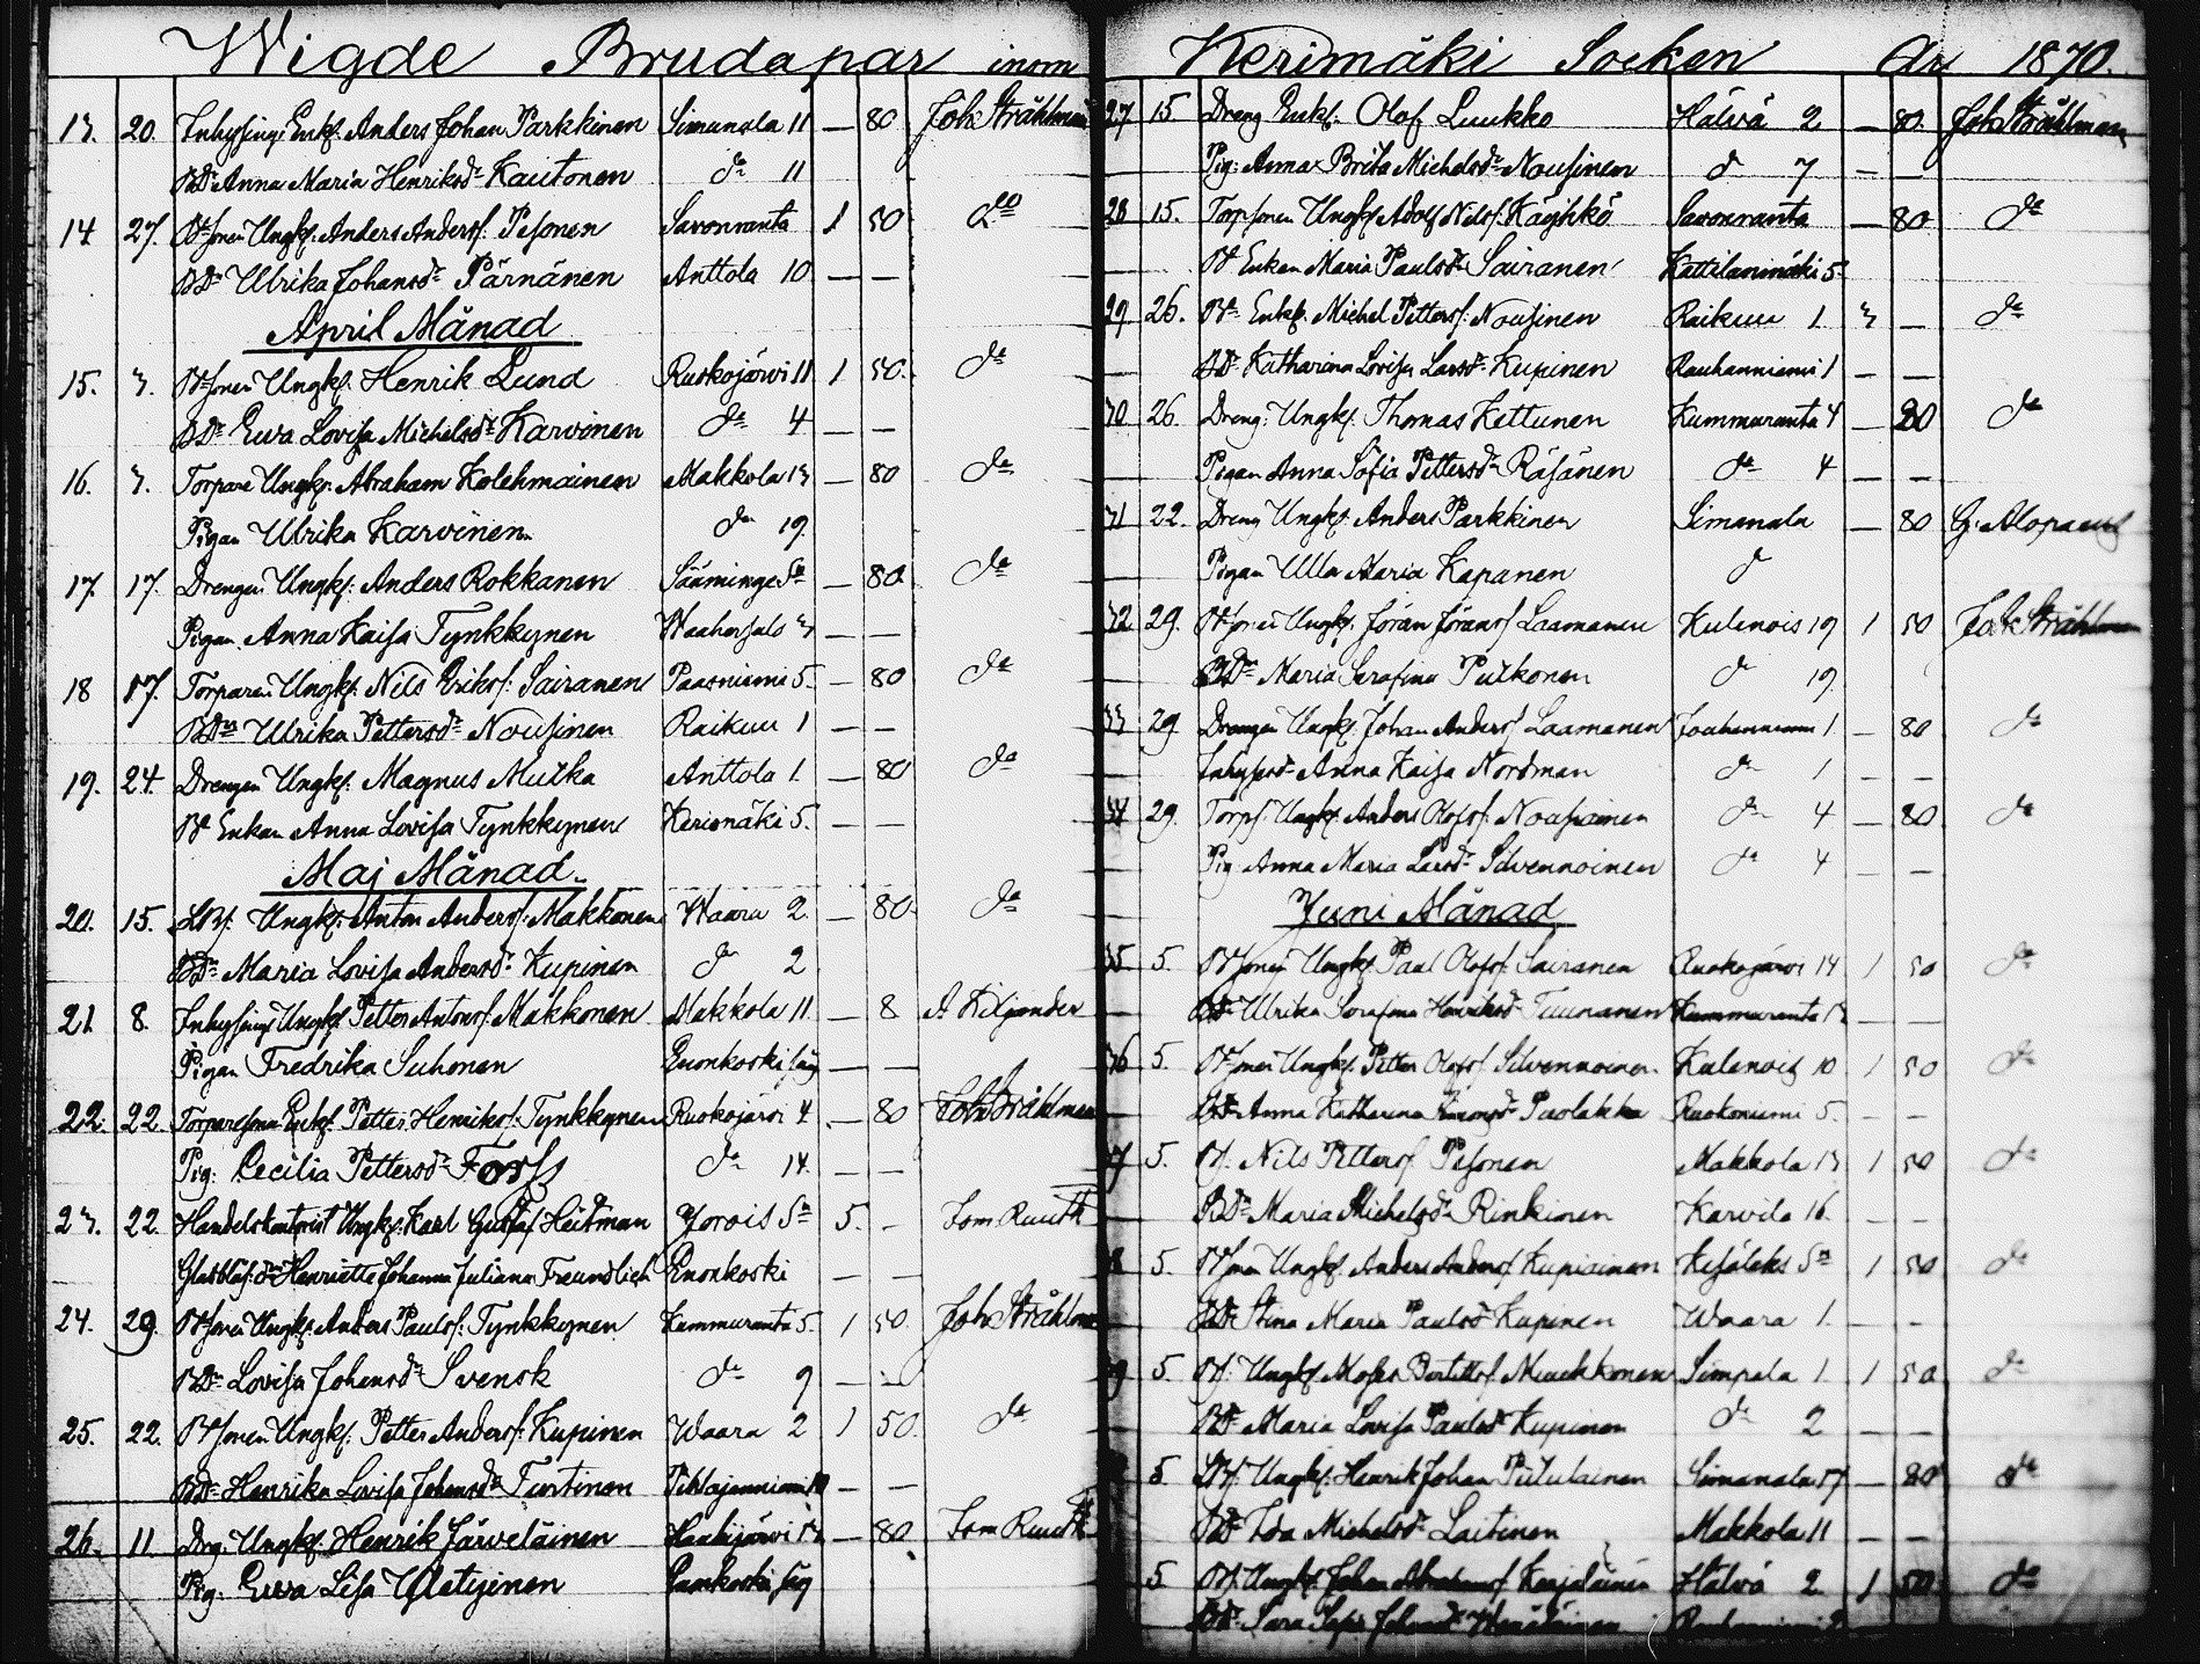 Wigde Brudapar inom
13. 20. Inhysings Enkl. Anders Johan Parkkinen Simanala 11 — 80 Joh Stråhlman
BDr Anna Maria Henriksdr Kautonen do 11
14 27. Bdsonen Ungkl. Anders Andersf. Pesonen Savonranta 1 50 do
BDr Ulrika Johansdr Pärnänen Anttola 10 — —
April Månad
15. 3. Bdsonen Ungkl. Henrik Lund Ruokojärvi 11 1 50. do
BDr Ewa Lovisa Michelsdr Karvinen do 4 — —
16. 3. Torpare Ungkl. Abraham Kolehmainen Makkola 13 — 80 do
Pigan Ulrika Karvinen do 19.
17. 17. Drengen Ungkl. Anders Rokkanen Sääminge Sn — 80 do
Pigan Anna Kaisa Tynkkynen Waahersalo 3 — —
18 17. Torparen Ungkl. Nils Eriksf. Sairanen Paasniemi 5. — 80 do
BDr Ulrika Pettersdr Nousinen Raikuu 1 — —
19. 24 Drengen Ungkl. Magnus Muika Anttola 1. — 80 do
Bd Enkan Anna Lovisa Tynkkynen Kerimäki 5. — —
Maj Månad
20. 15. Ungkl. Anton Andersf. Makkonen Waara 2. — 80. do
BDr Maria Lovisa Andersdr Kupinen do 2
21. 8. Inhysings Ungkl. Petter Antonsf. Makkonen Makkola 11 — 8 A Kiljander
Pigan Fredrika Suhonen Enonkoski såg — —
22. 22. Torparesonen Enkl. Petter Henriksf. Tynkkynen Ruokojärvi 4 — 80 Joh Stråhlman
Pig: Cecilia Pettersdr Forss do 14. — —
23. 22 Handelskontorist Ungkl. Karl Gustaf Heitman Jorois Sn 5. — Tom Ruuth
Glasblås: dr Henriette Johanna Juliana Freundlich Enonkoski — —
24. 29. Bdsonen Ungkl. Anders Paulsf. Tynkkynen Kummuranta 5. 1 50. Joh Stråhlman
BDr Lovisa Johansdr Svensk do 9 — —
25. 22. Bdsonen Ungkl. Petter Andersf. Kupinen Waara 2 1 50. do
BDr Henrika Lovisa Johansdr Turtinen Pihlajaniemi 10 — —
26. 11. Drg: Ungkl. Henrik Järveläinen Haukijärvi — 80 Tom Ruuth
Pig: Ewa Lisa såg
Kerimäki Socken År 1870.
27 15. Dreng Enkl. Olof Luukko Hälvä 2 — 80. Joh Stråhlman
— Pig: Anna Brita Michelsdr Nousinen d 7 — —
28 15. Torpsonen Ungkl. Adolf Nilsf. Käyhkö Savonranta — 80 do
— Bd Enkan Maria Paulsdr Sairanen Kattilanmäki 5
29 26. Bd Enkl. Michel Pettersf. Nousinen Raikuu 1 3 — do
— BDr Katharina Lovisa Larsdr Kupinen Rauhanniemi 1 — —
30 26. Dreng: Ungkl. Thomas Kettunen Kummuranta 4 — 80 do
— Pigan Anna Sofia Pettersdr Räsänen do 4 — —
31 22. Dreng Ungkl. Anders Parkkinen Simanala — 80 G. Alopaeus
— Pigan Ulla Maria Kapanen d
32 29. Bdsonen Ungkl. Jöran Jöransf Laamanen Kulenois 19 1 50 Joh Stråhlman
— BDr Maria Serafina Pulkonen d 19.
33 29. Drengen Ungkl. Johan Andersf Laamanen Jouhenniemi 1. — 80 do
— Inhysesdr Anna Kaisa Nordman do 1 — —
34 29. Torpf. Ungkl. Anders Olofsf. Nousiainen do 4 — 80 do
— Pig Anna Maria Larsdr Silvennoinen do 4 — —
— Juni Månad
35. 5. Bdsonen Ungkl. Paul Olofsf. Sairanen Ruokojärvi 14 1 50 do
— BDr Ulrika Serafina Henriksdr Tuunanen Kummuranta — —
36 5. Bdsonen Ungkl. Petter Olofsf Silvennoinen Kulenois 10 1 50 do
— BDr Anna Katharina Puolakka Ruokoniemi 5. — —
37 5. Bf. Nils Pettersf. Pesonen Makkola 13 1 50 do
— BDr Maria Michelsdr Rinkinen Karvila 16. — —
38 5. Bdsonen Ungkl. Anders Andersf Kupiainen Kesälaks Sn 1 50 do
— BDr Stina Maria Paulsdr Kupinen Waara 1. — —
39 5. Bf. Ungkl Moses Bertilsf. Muukkonen Simpala 1. 1 50 do
— BDr Maria Lovisa Paulsdr Kupinen do 2 — —
5 Ungkl. Henrik Johan Piitulainen Simanala 17 — 80 do
BDr Ida Michelsdr Laitinen Makkola 11 — —
5 Bf. Ungkl. Johan Abrahamsf Karjalainen Hälvä 2 1 50. do
BDr Sara Sofia Johansdr